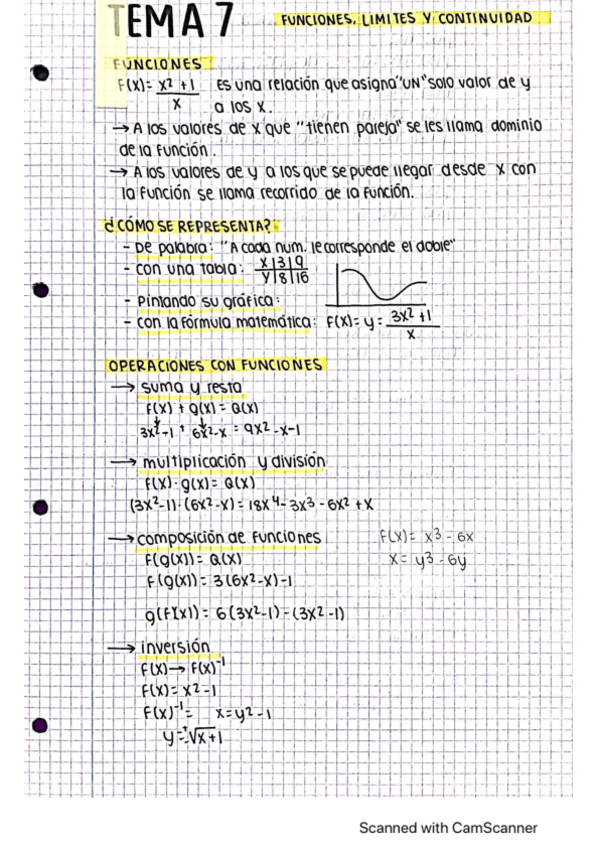 TEMA 7
FUNCIONES, LIMITES Y CONTINUIDAD
FUNCIONES
F(X)= x² +1 / x Es una relación que asigna "UN" solo valor de y
a los x.
→ A los valores de x que "tienen pareja" se les llama dominio
de la función.
→ A los valores de y a los que se puede llegar desde x con
la función se llama recorrido de la función.
¿CÓMO SE REPRESENTA?
- De palabra: "A cada num. le corresponde el doble"
- con una tabla: x | 3 | 9
y | 8 | 16
- Pintando su gráfica:
- con la fórmula matemática: F(X)= y = 3x² +1 / x
OPERACIONES CON FUNCIONES
→ suma y resta
F(X) + g(x) = Q(X)
3x²-1 + 6x²-x = 9x² -x-1
→ multiplicación y división
F(X)· g(x)= Q(X)
(3x²-1)·(6x²-x)= 18x⁴- 3x³ - 6x² + x
→ composición de funciones
F(X)= x³ - 6x
F(g(x)) = Q(X)
x= y³ - 6y
F(g(x)) = 3(6x²-x)-1
g(F(x)) = 6(3x²-1)-(3x²-1)
→ inversión
F(X)→ F(X)⁻¹
F(X)= x²-1
F(X)⁻¹= x=y²-1
y=±√x+1
Scanned with CamScanner